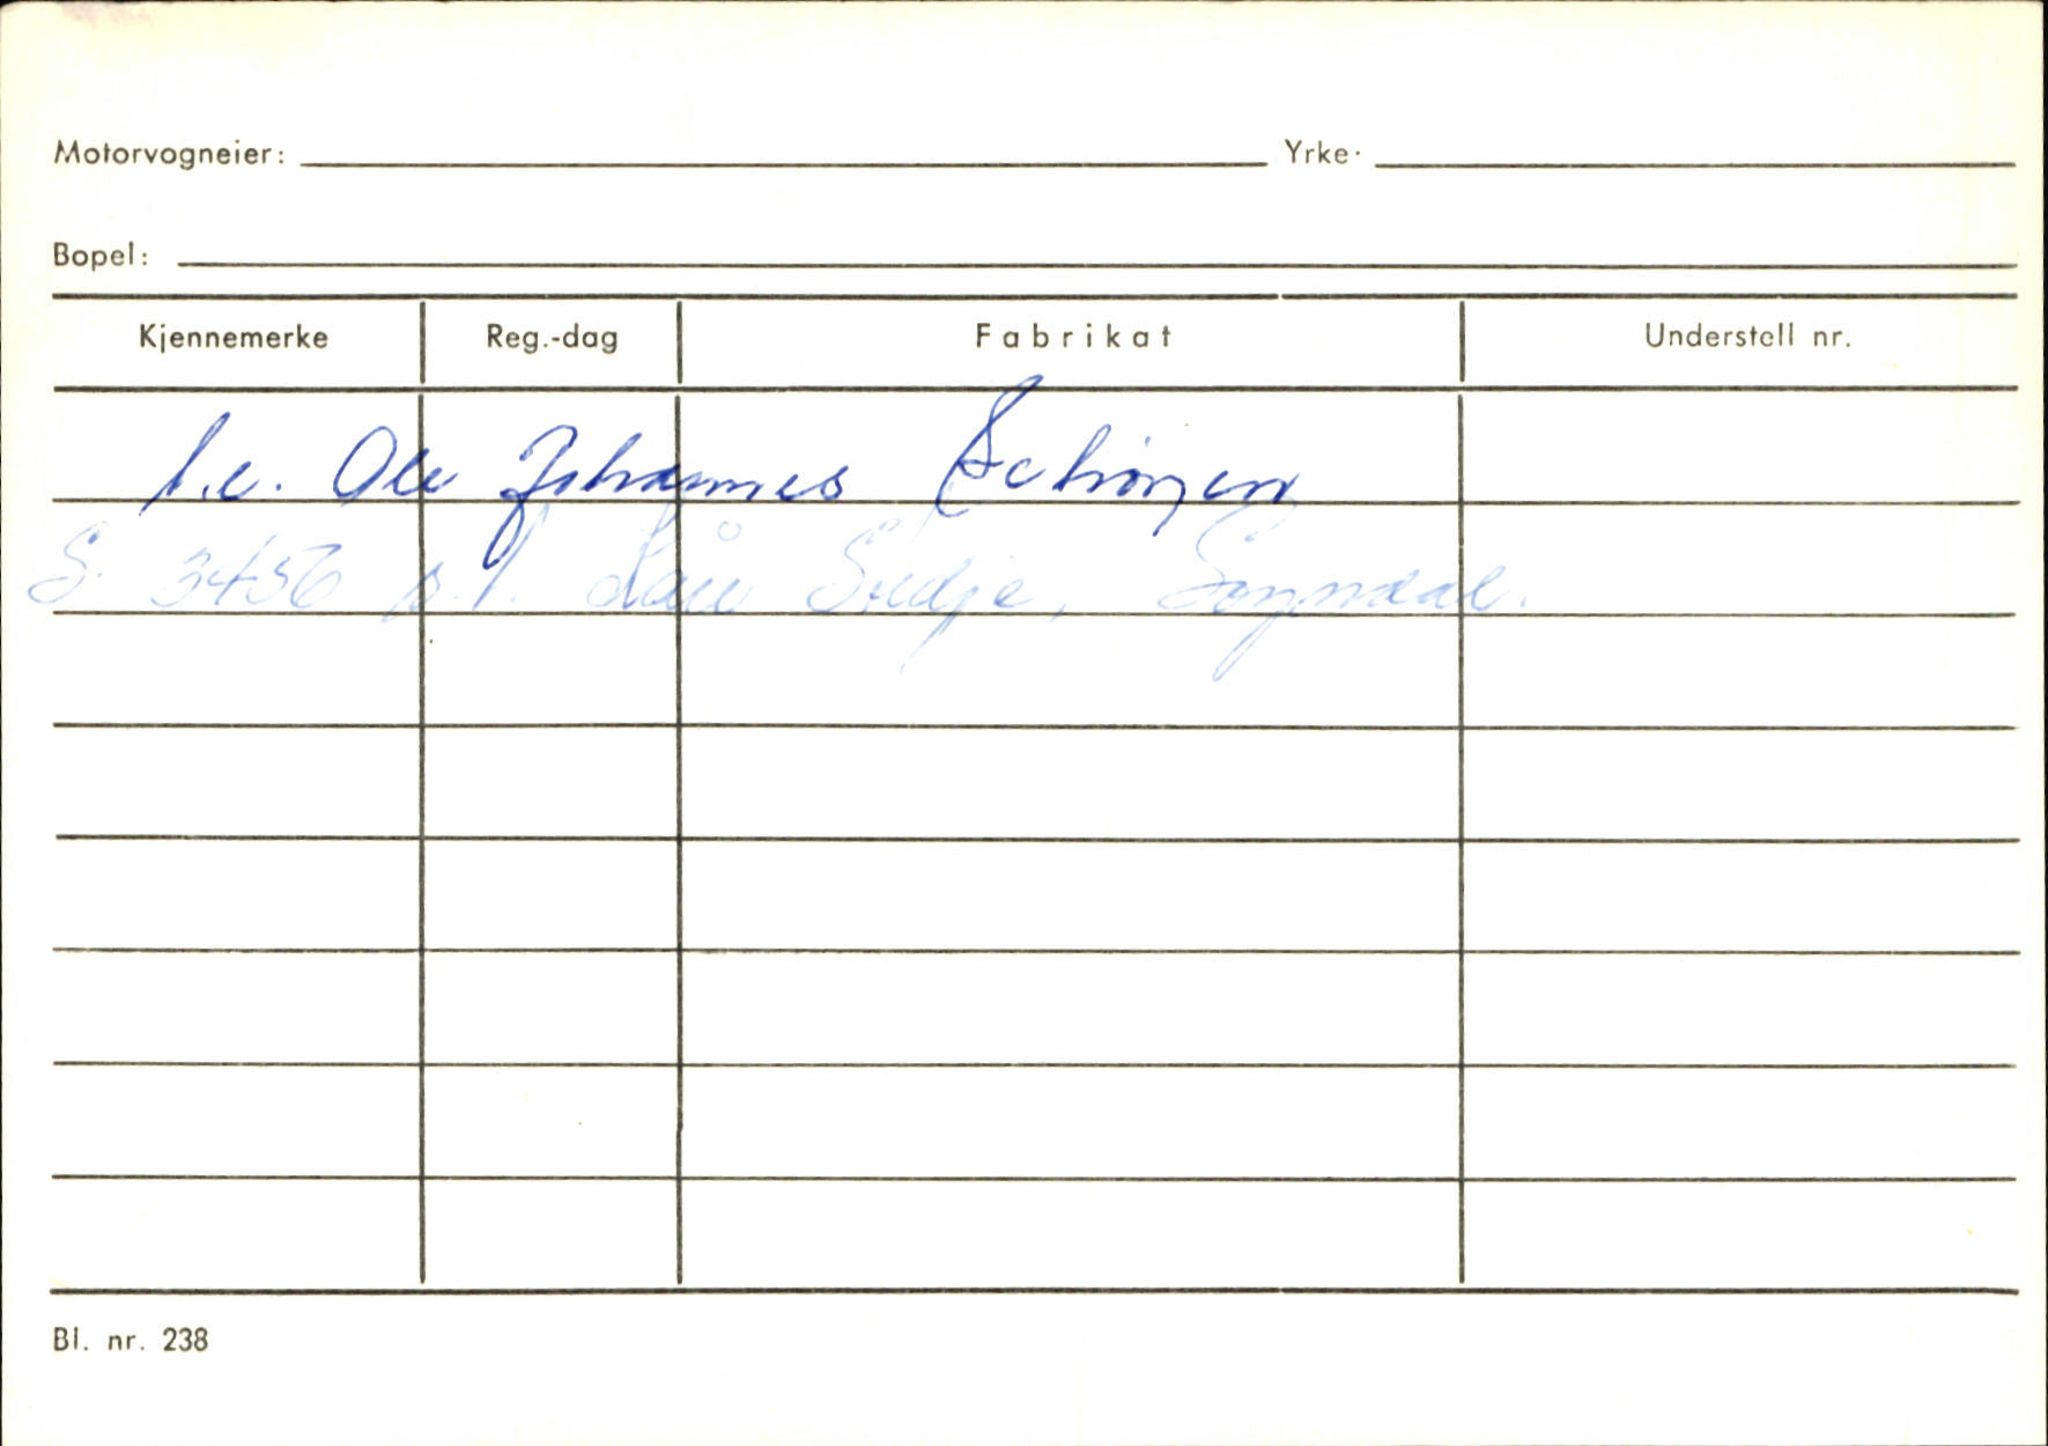 Motorvogneier: Yrke.
Bopel:
Kjennemerke Reg.-dag Fabrikat Understell nr.
Ole Johannes
S. 3456 s.f. Kåre Sogndal.
Bl. nr. 238